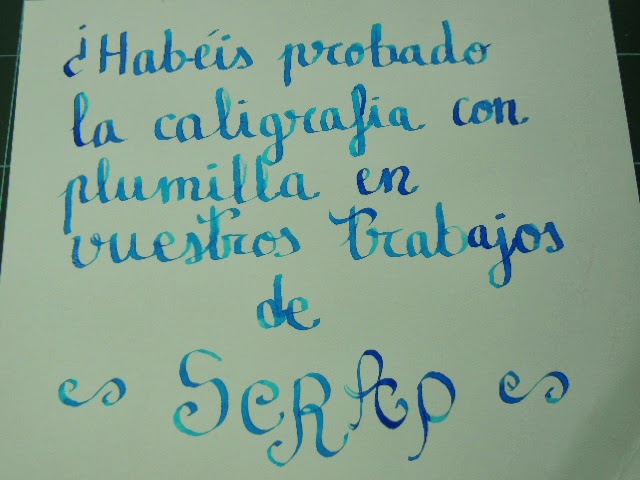 ¿Habéis probado
la caligrafia con
plumilla en
vuestros trabajos
de
ScRAp